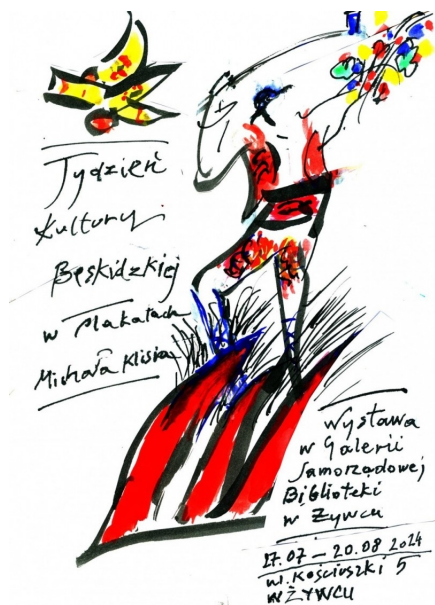 Tydzień
Kultury
Beskidzkiej
w Plakatach
Michała Klisia
Wystawa
w Galerii
Samorządowej
Biblioteki
w Żywcu
27.07 – 20.08 2024
ul. Kościuszki 5
w ŻYWCU